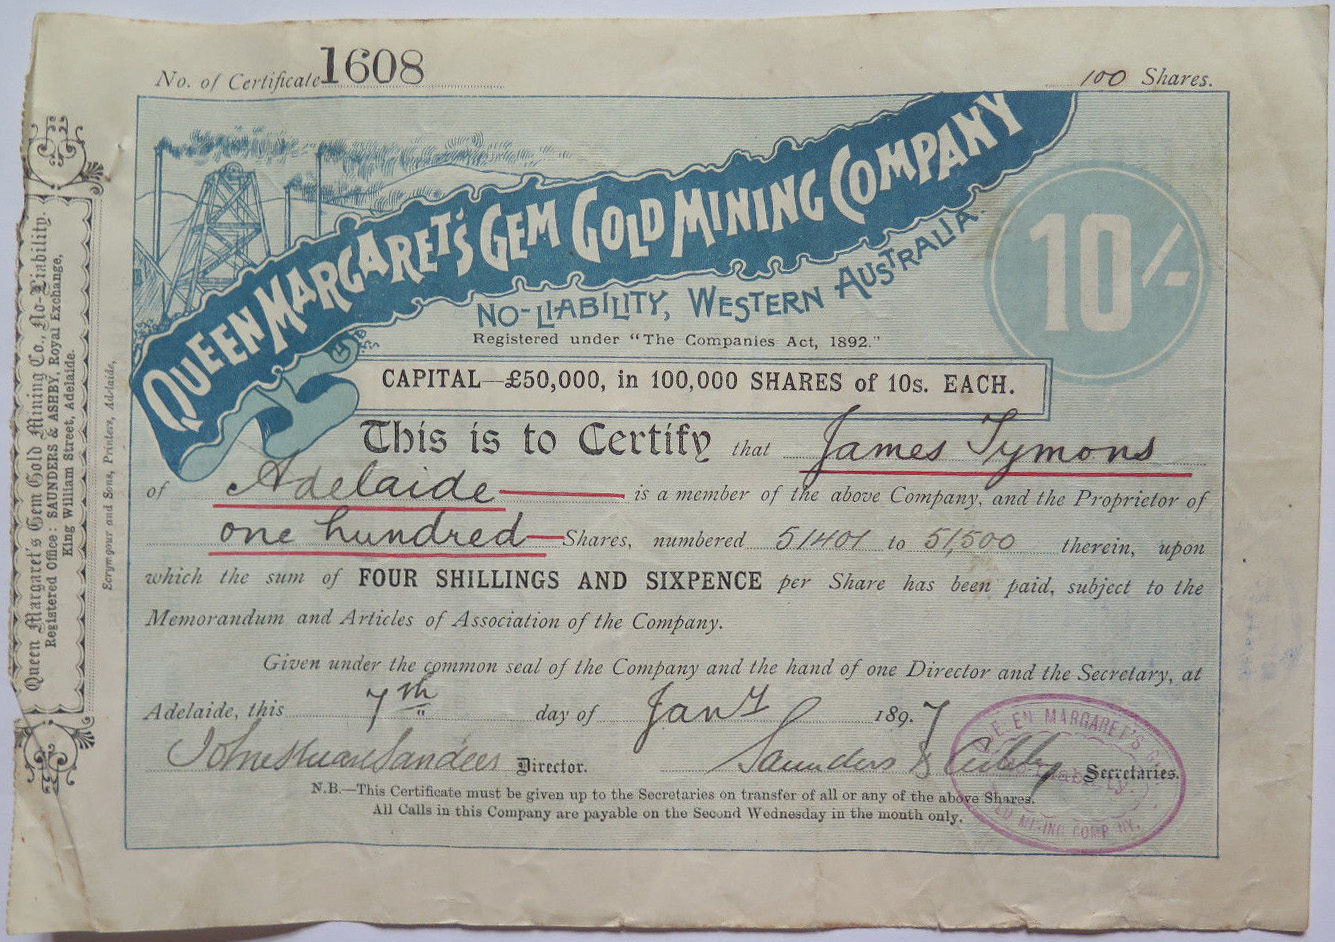 No. of Certificate 1608
100 Shares.
QUEEN MARGARET'S GEM GOLD MINING COMPANY
10/-
NO-LIABILITY, WESTERN AUSTRALIA.
Registered under "The Companies Act, 1892."
CAPITAL—£50,000, in 100,000 SHARES of 10s. EACH.
This is to Certify that James Tymons
of Adelaide is a member of the above Company, and the Proprietor of
one hundred Shares, numbered 51401 to 51,500 therein, upon
which the sum of FOUR SHILLINGS AND SIXPENCE per Share has been paid, subject to the
Memorandum and Articles of Association of the Company.
Given under the common seal of the Company and the hand of one Director and the Secretary, at
Adelaide, this 7th day of Jany 1897
Director.
Saunders & Ashby Secretaries.
N.B.—This Certificate must be given up to the Secretaries on transfer of all or any of the above Shares.
All Calls in this Company are payable on the Second Wednesday in the month only.
Queen Margaret's Gem Gold Mining Co. No-Liability.
Registered Office: SAUNDERS & ASHBY, Royal Exchange,
King William Street, Adelaide.
Scrymgour and Sons, Printers, Adelaide,
MARGARET'S
MINING COMPANY.